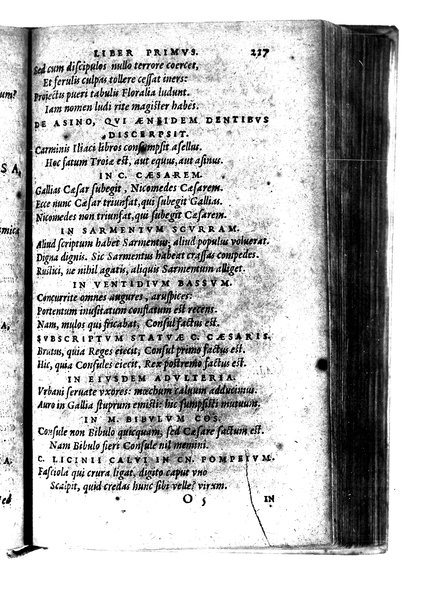 LIBER PRIMVS. 217
Sed cum discipulos nullo terrore coercet,
Et ferulis culpas tollere cessat iners:
Proiectis pueri tabulis Floralia ludunt.
Iam nomen ludi rite magister habes.
DE ASINO, QVI AENEIDEM DENTIBVS
DISCERPSIT.
Carminis Iliaci libros consumpsit asellus.
Hoc fatum Troiæ est, aut equus, aut asinus.
IN C. CÆSAREM.
Gallias Cæsar subegit, Nicomedes Cæsarem.
Ecce nunc Cæsar triumfat, qui subegit Gallias.
Nicomedes non triumfat, qui subegit Cæsarem.
IN SARMENTVM SCVRRAM.
Aliud scriptum habet Sarmentus, aliud populus voluerat.
Digna dignis. Sic Sarmentus habeat crassas compedes.
Rustici, ne nihil agatis, aliquis Sarmentum alliget.
IN VENTIDIVM BASSVM.
Concurite omnes augures, aruspices:
Portentum inusitatum conflatum est recens.
Nam, mulos qui fricabat, Consul factus est.
SVBSCRIPTVM STATVAE C. CÆSARIS.
Brutus, quia Reges eiecit, Consul primo factus est.
Hic, quia Consules eiecit, Rex postremo factus est.
IN EIVSDEM ADVLTERIA.
Vrbani seruate vxores: mœchum caluum adducimus.
Auro in Gallia stuprum emisti: hic sumpsisti mutuum.
IN M. BIBVLVM COS.
Consule non Bibulo quicquam, sed Cæsare factum est.
Nam Bibulo fieri Consule nil memini.
C. LICINII CALVI IN CN. POMPEIVM.
Fasciola qui crura ligat, digito caput vno
Scalpit, quid credas hunc sibi velle? virum.
O 5 IN